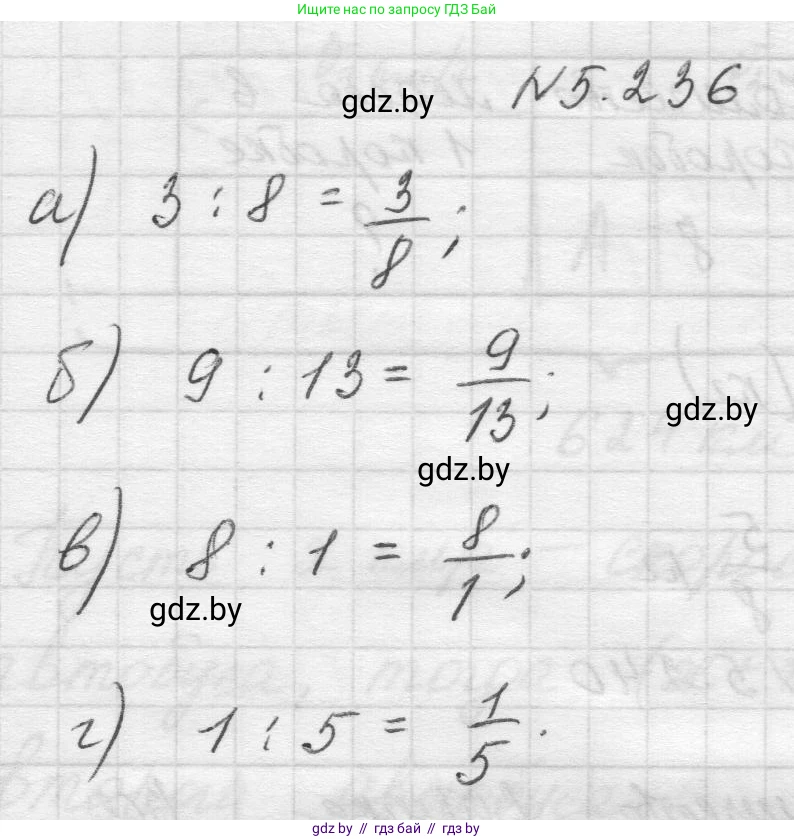 Ищите нас по запросу ГДЗ Бай
gdz.by
N5.236
а) 3 : 8 = 3/8;
б) 9 : 13 = 9/13;
gdz.by
gdz.by
в) 8 : 1 = 8/1;
gdz.by
г) 1 : 5 = 1/5.
gdz by // гдз бай // gdz by